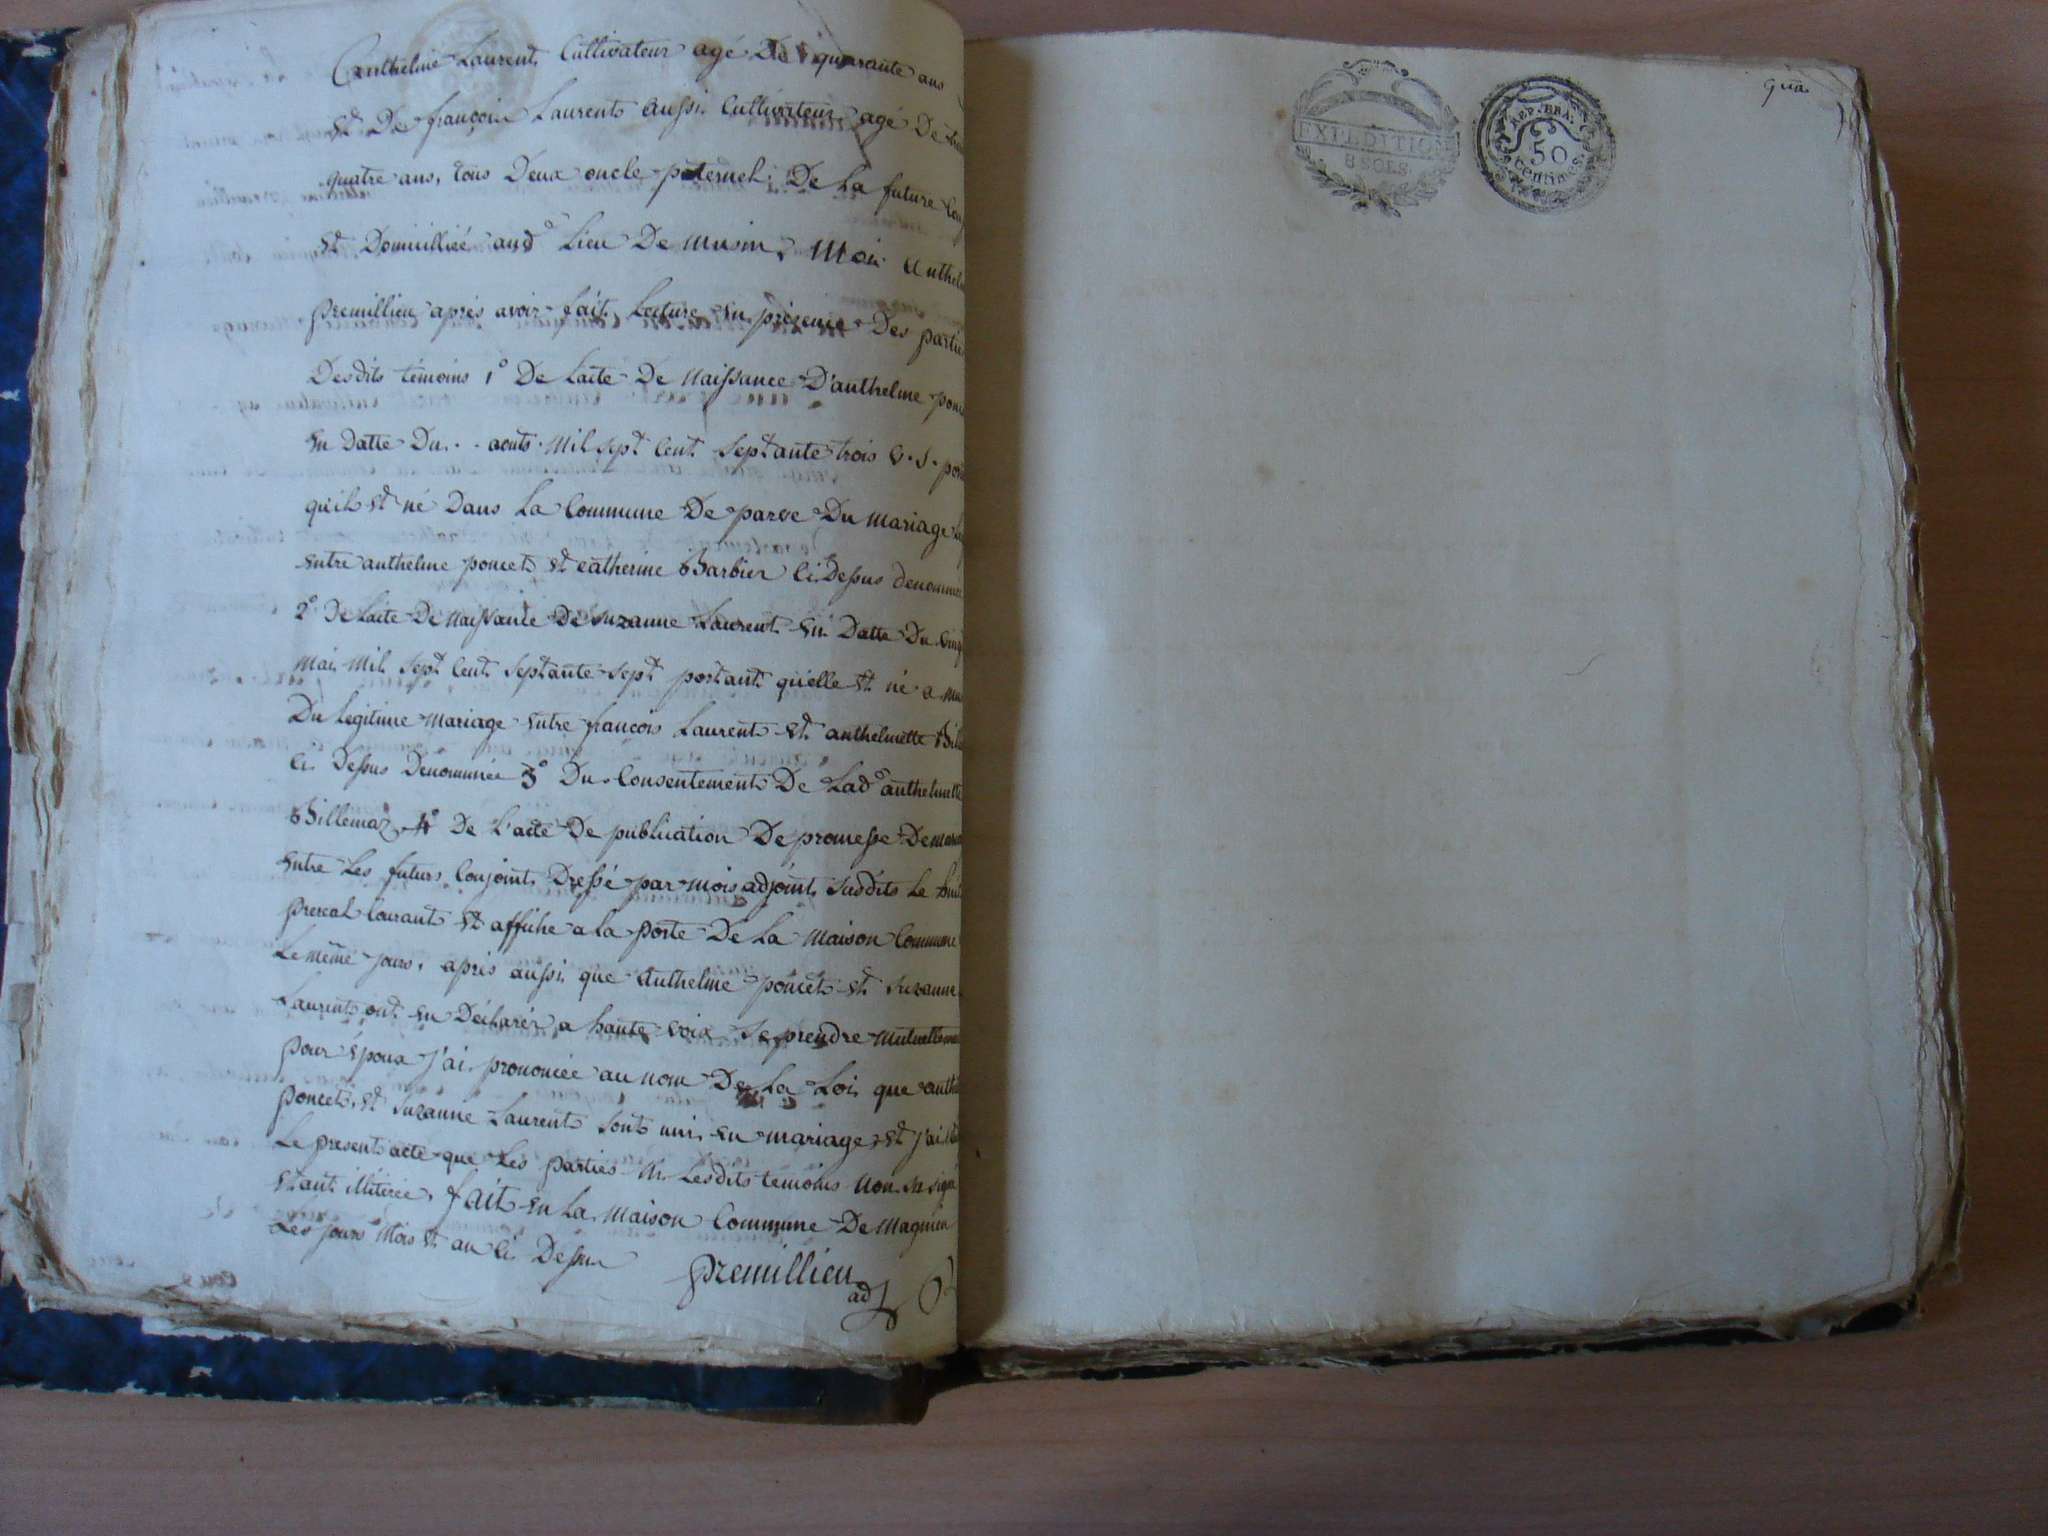 anthelme Laurent Cultivateur agé De quarante ans
Et De françois Laurent aussi Cultivateur agé De
quatre ans, tous Deux oncle paternel De La future
Et Domicilliée aud° Lieu De musin, Moi Anthelme
premillieu après avoir fait Lecture En présence Des parties
Desdits témoins 1° De Lacte De Naissance D'anthelme
En Datte Du . . aouts Mil sept Cent septante trois V. S.
quil Et né Dans La Commune De parve Du mariage
Entre anthelme poncet Et catherine Barbier Ci Dessus denommé
2° De Lacte De Naissance De Suzanne Laurent En Datte Du
mai Mil sept Cent septante sept portant quelle Et né a
Du Legitime mariage Entre françois Laurent Et anthelmette
Ci Dessus Denommée 3° Du Consentement De Lad° anthelmette
Billemaz 4° De L'acte De publication De promesse De
Entre Les futurs Conjoint Dressé par mois adjoint susdits Le
prereal Courant Et affiche a la porte De La maison Commune
Le même jours, après aussi que Anthelme poncet Et Suzanne
Laurent ont En Déclarér a haute voix se prendre mutuellement
pour Epoux j'ai prononcée au nom De La Loi que
poncet, Et Suzanne Laurent sont uni En mariage Et j'ai
Le present acte que Les parties Ni Lesdits temoins non En signé
Etant illiterée, fait En La maison Commune De Magnieu
Les jours Mois Et an Ci Dessu
premillieu
adj
EXPEDITION
8 SOLS
REP. FRA.
50
Centimes